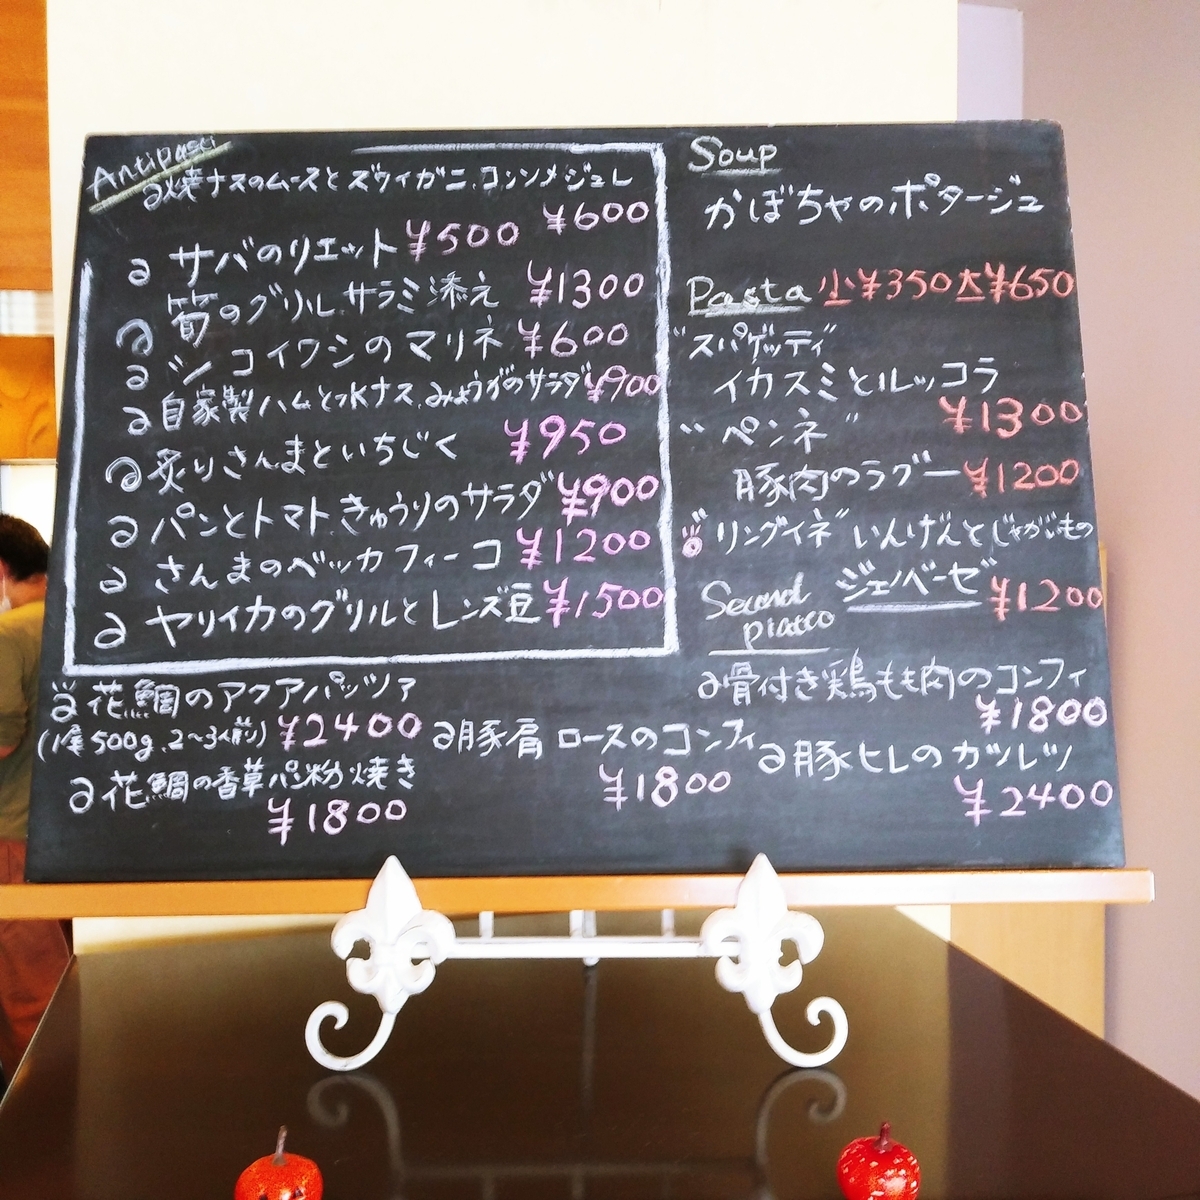 Antipasti
焼ナスのムースとズワイガニ、コンソメジュレ
¥600
サバのリエット ¥500
筍のグリル サラミ添え ¥1300
シコイワシのマリネ ¥600
自家製ハムと水ナス、みょうがのサラダ ¥900
炙りさんまといちじく ¥950
パンとトマト、きゅうりのサラダ ¥900
さんまのベッカフィーコ ¥1200
ヤリイカのグリルとレンズ豆 ¥1500
花鯛のアクアパッツァ
(1尾500g、2~3人前) ¥2400
花鯛の香草パン粉焼き
¥1800
豚肩ロースのコンフィ
¥1800
Soup
かぼちゃのポタージュ
Pasta 小¥350 大¥650
"スパゲッティ"
イカスミとルッコラ
¥1300
"ペンネ"
豚肉のラグー ¥1200
"リングイネ" いんげんとじゃがいもの
ジェノベーゼ ¥1200
Second
piatto
骨付き鶏もも肉のコンフィ
¥1800
豚ヒレのカツレツ
¥2400